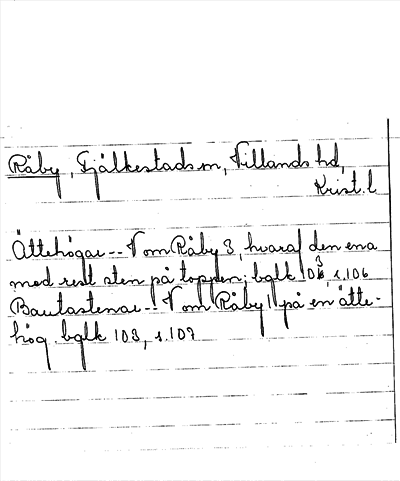 Råby, Fjälkestads sn, Villands hd,
Krist. l
Ättehögar -- V om Råby 3, hvaraf den ena
med rest sten på toppen; bglk 103, s. 106
Bautastenar -- V om Råby 1 på en ätte-
hög. bglk 103, s. 107